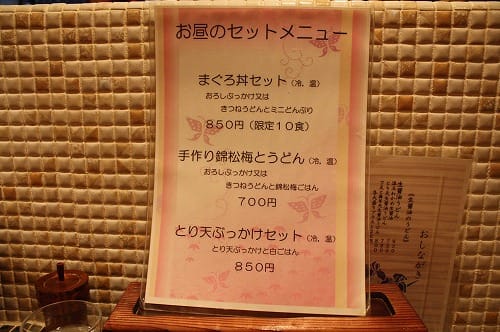 お昼のセットメニュー
まぐろ丼セット（冷、温）
おろしぶっかけ又は
きつねうどんとミニどんぶり
８５０円（限定１０食）
手作り錦松梅とうどん（冷、温）
おろしぶっかけ又は
きつねうどんと錦松梅ごはん
７００円
とり天ぶっかけセット（冷、温）
とり天ぶっかけと白ごはん
８５０円
おしながき